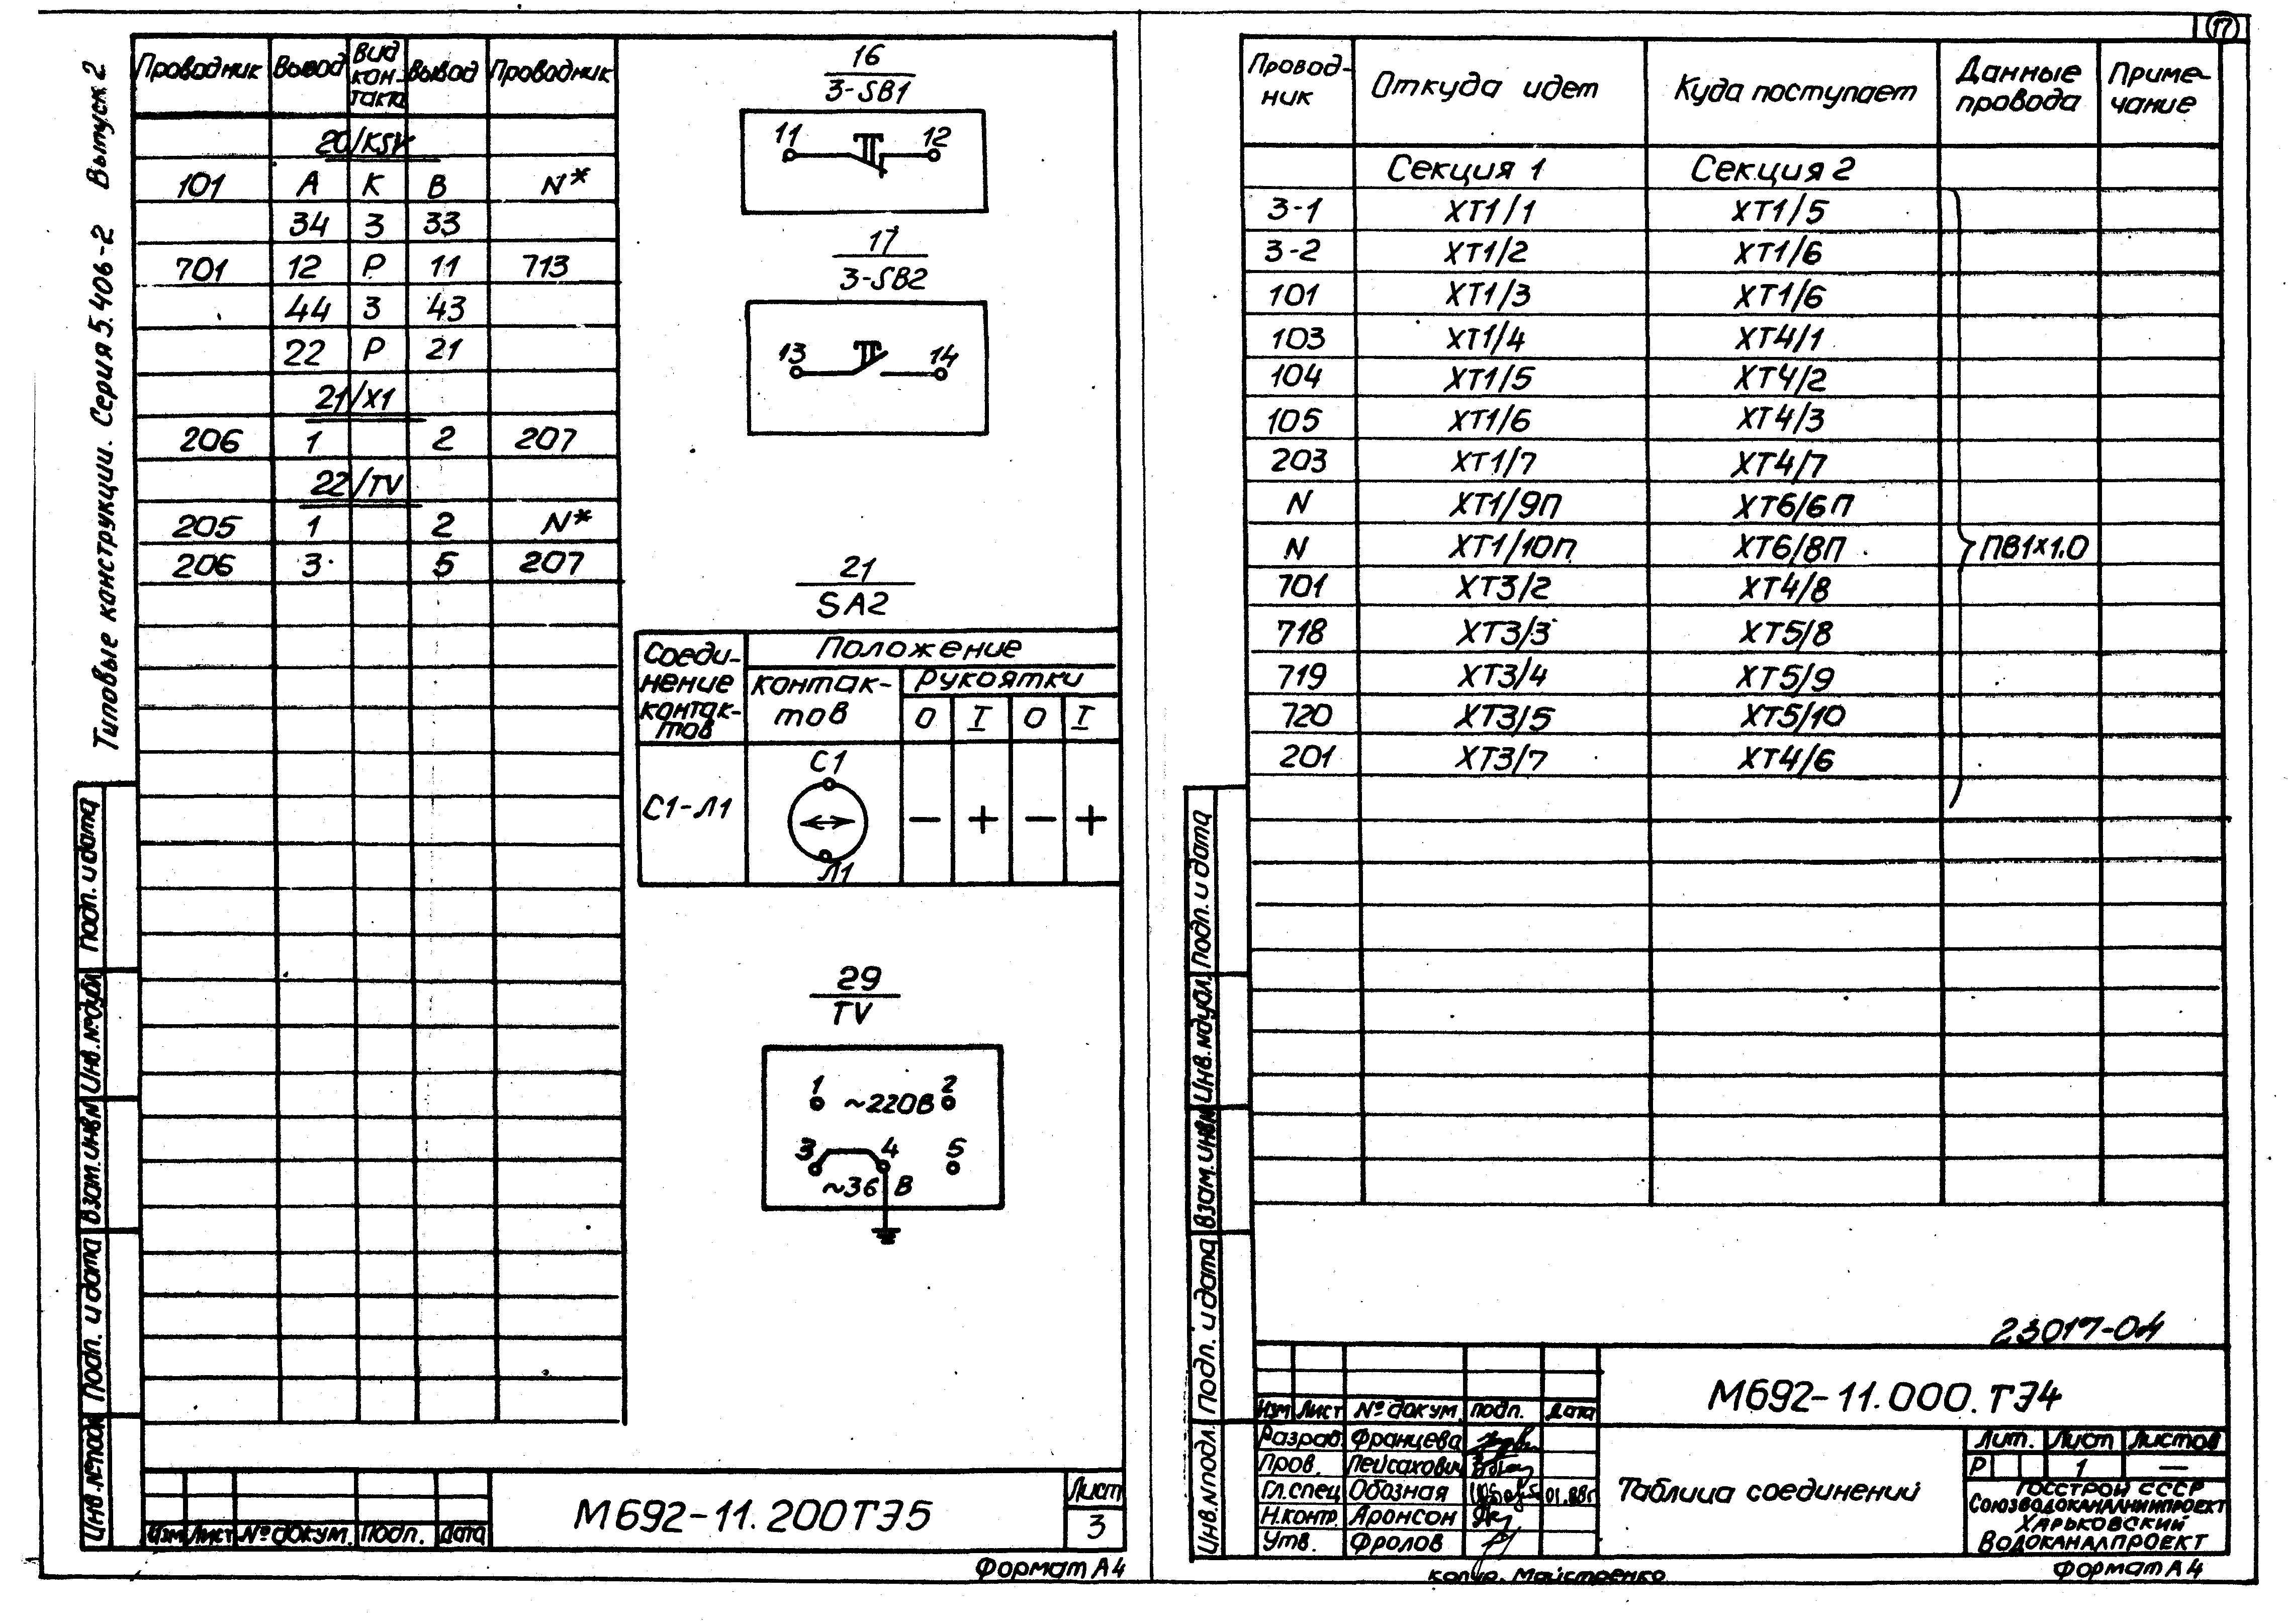 Типовые конструкции. Серия 5.406-2 Выпуск 2
Проводник Вывод Вид кон-такта Вывод Проводник
20/KSV
101 А К В N*
34 З 33
701 12 Р 11 713
44 З 43
22 Р 21
21/X1
206 1 2 207
22/TV
205 1 2 N*
206 3 5 207
16
3-SB1
11 12
17
3-SB2
13 14
21
SA2
Соеди-
нение
контак-
тов
Положение
контак-
тов
Рукоятки
0 I 0 I
С1-Л1
С1
Л1
— + — +
29
TV
1 ~220В 2
3 4 5
~36 В
Подп. и дата
Инв.№дубл
Взам.инв.№
Подп. и дата
Инв.№подл
Изм Лист № докум. Подп. Дата
М692-11.200ТЭ5
Лист
3
Формат А4
17
Провод-
ник
Откуда идет
Куда поступает
Данные
провода
Приме-
чание
Секция 1 Секция 2
3-1 ХТ1/1 ХТ1/5
3-2 ХТ1/2 ХТ1/6
101 ХТ1/3 ХТ1/6
103 ХТ1/4 ХТ4/1
104 ХТ1/5 ХТ4/2
105 ХТ1/6 ХТ4/3
203 ХТ1/7 ХТ4/7
N ХТ1/9П ХТ6/6П
N ХТ1/10П ХТ6/8П ПВ1х1.0
701 ХТ3/2 ХТ4/8
718 ХТ3/3 ХТ5/8
719 ХТ3/4 ХТ5/9
720 ХТ3/5 ХТ5/10
201 ХТ3/7 ХТ4/6
Подп. и дата
Инв.№дубл.
Взам.инв.№
Подп. и дата
Инв.№подл.
23017-04
М692-11.000.ТЭ4
Изм Лист № докум. подп. Дата
Разраб. Францева
Пров. Лейсахович
Гл.спец Обозная 01.88г
Н.контр. Аронсон
Утв. Фролов
Таблица соединений
Лит. Лист Листов
Р 1 —
Госстрой СССР
Союзводоканалниипроект
Харьковский
Водоканалпроект
копир. Майстренко
Формат А4